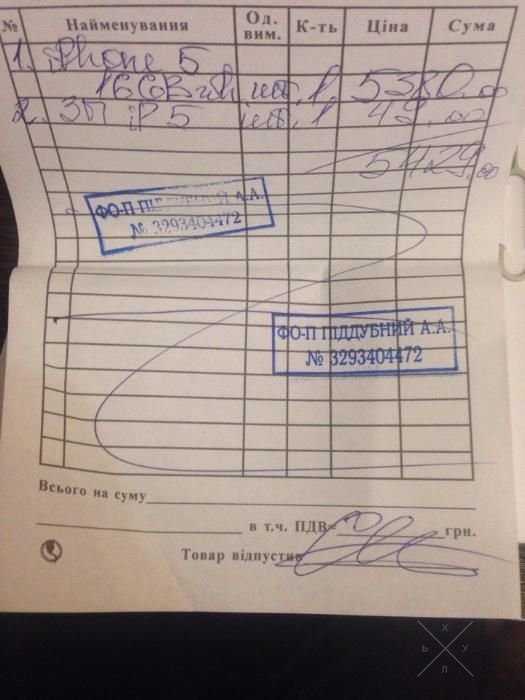 № Найменування Од. вим. К-ть Ціна Сума
1. iPhone 5
16GB шт. 1 5380.00
2. ЗП iP 5 шт. 1 49.00
5429.00
ФО-П ПІДДУБНИЙ А.А.
№ 3293404472
ФО-П ПІДДУБНИЙ А.А.
№ 3293404472
Всього на суму
в т.ч. ПДВ= грн.
Товар відпустив
Х
Ь У
Л